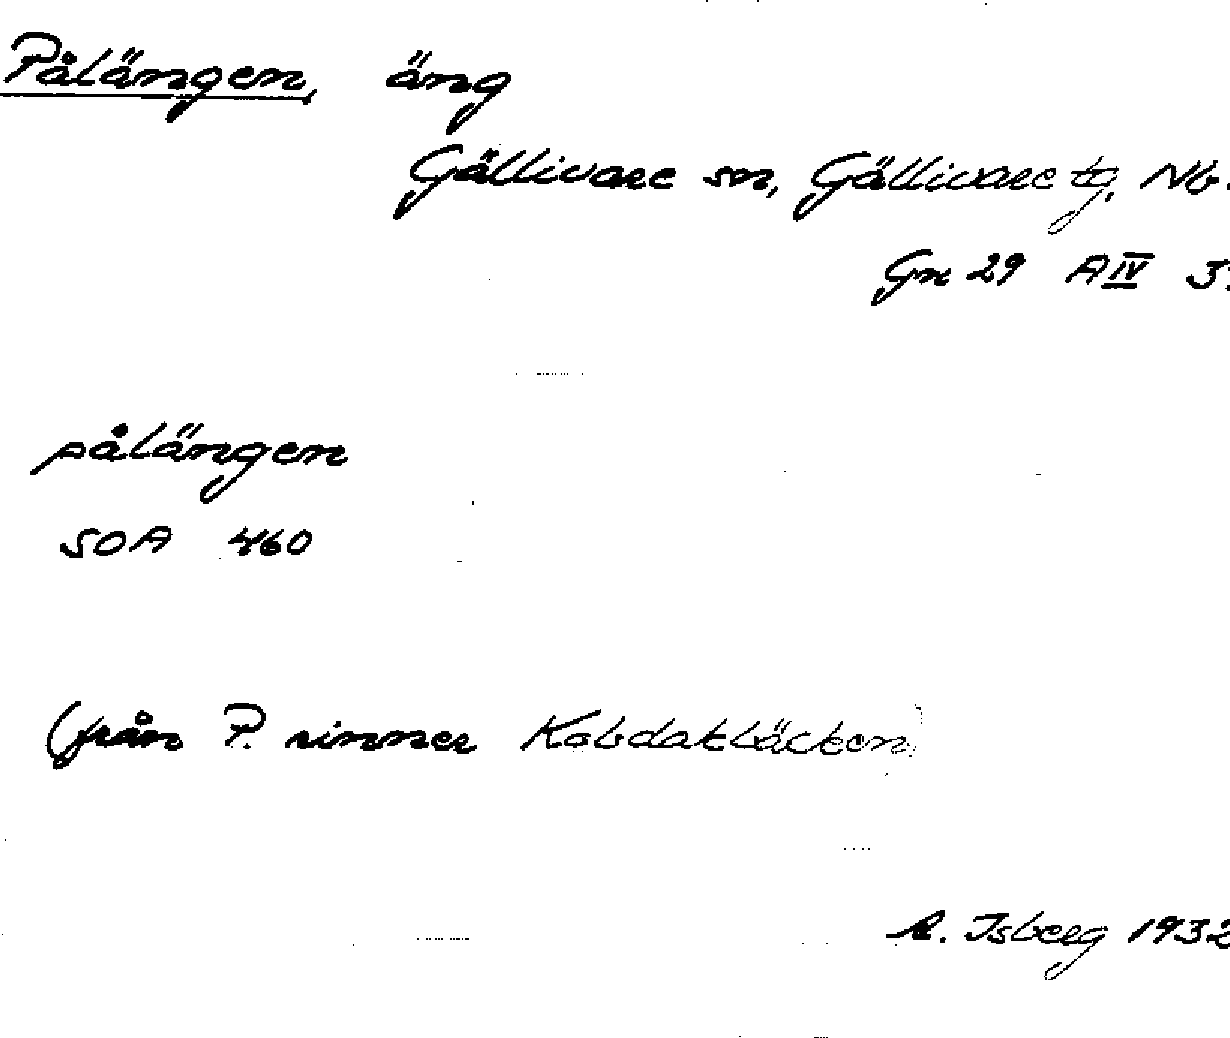 Pålängen, äng
Gällivare sn, Gällivare tg, Nb.
Gn 29 A IV
pålängen
SOA 460
(från P. rinner Kabdakbäcken)
Isberg 1932